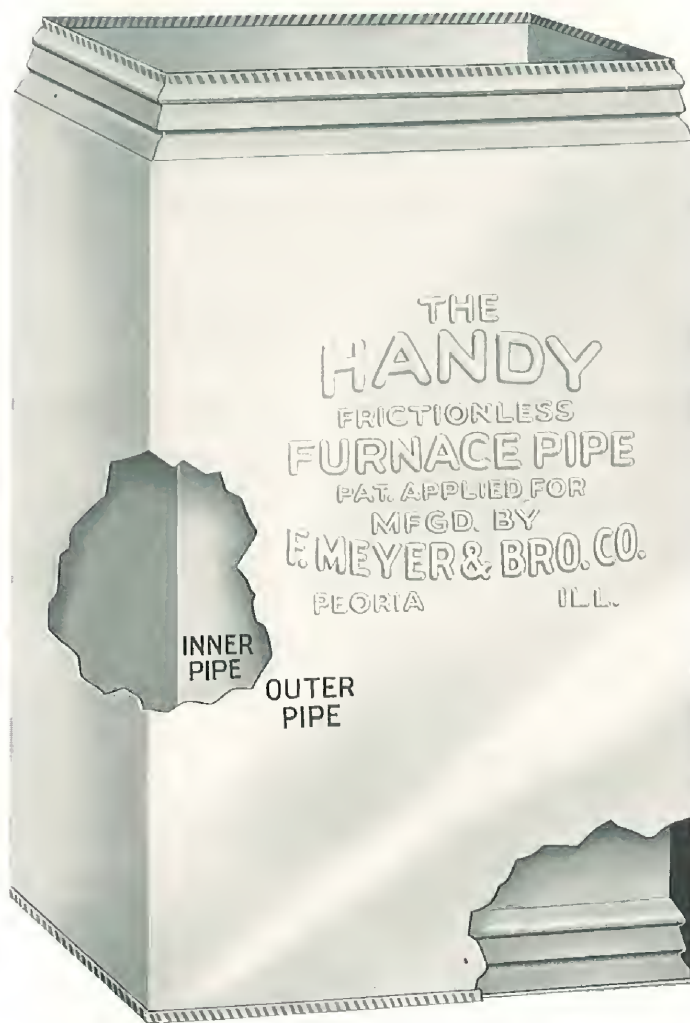 THE
HANDY
FRICTIONLESS
FURNACE PIPE
PAT. APPLIED FOR
MFGD. BY
F. MEYER & BRO. CO.
PEORIA ILL.
INNER
PIPE
OUTER
PIPE